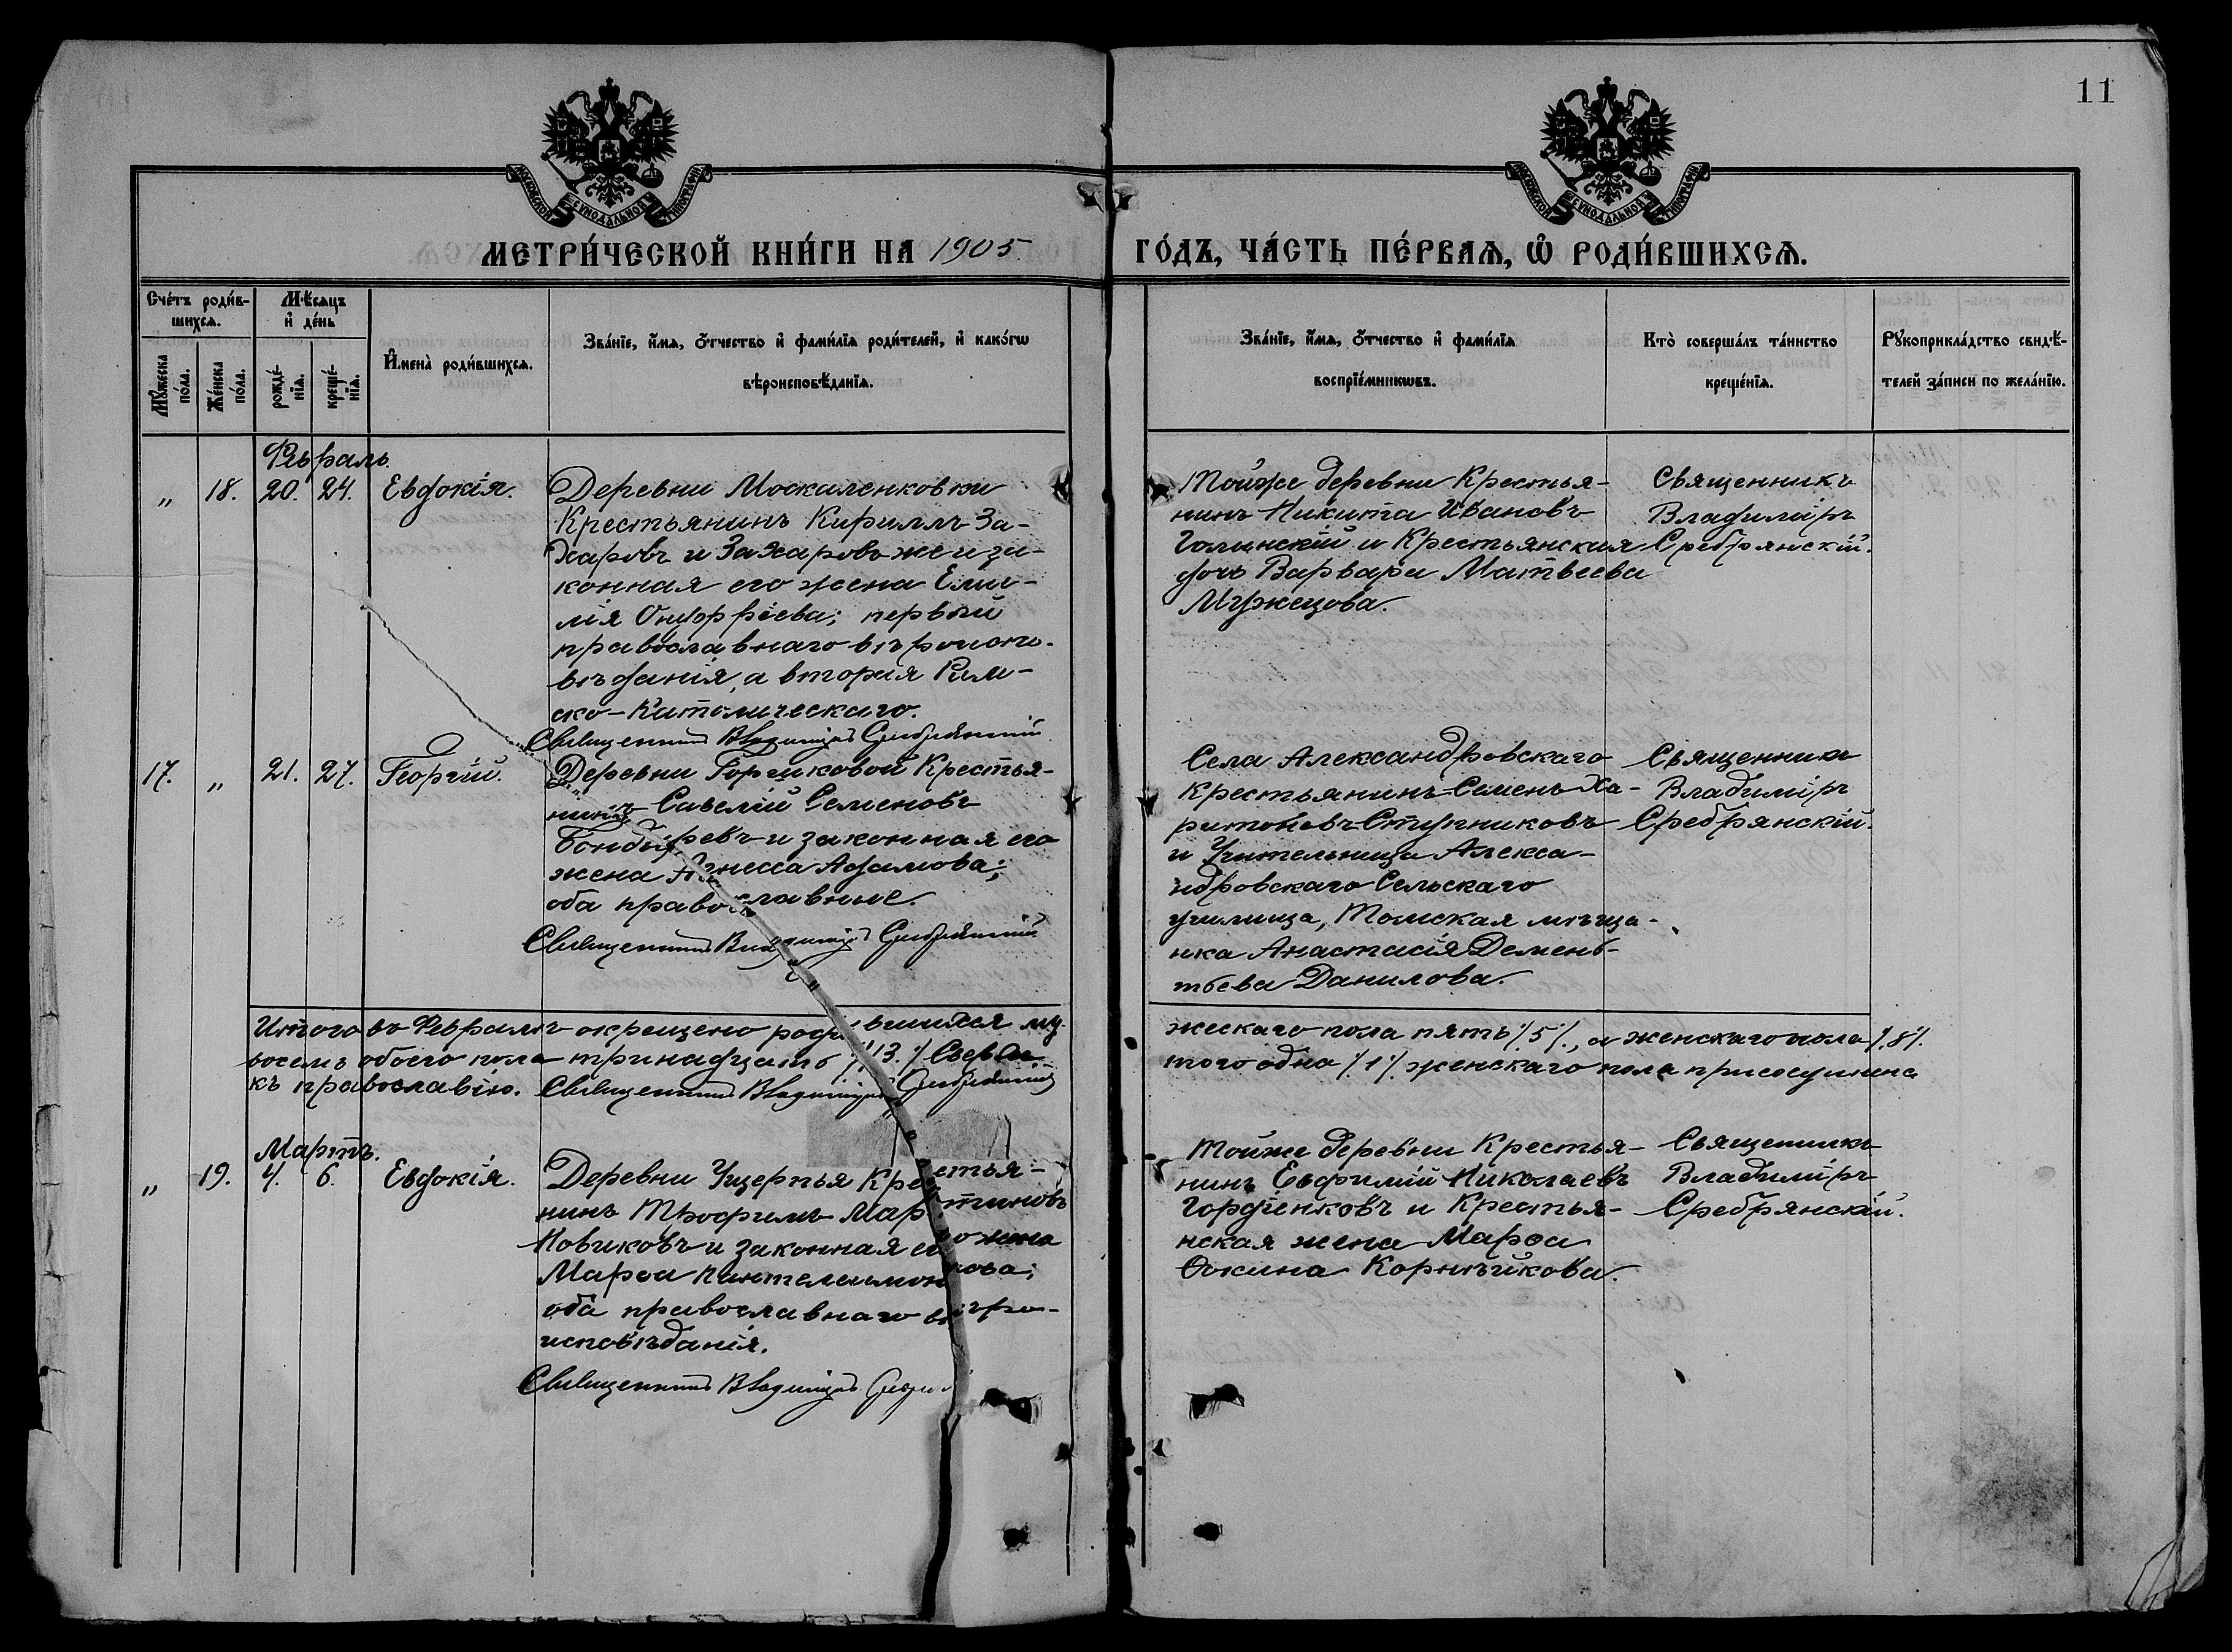 11
МОСКОВСКОЙ СѴНОДАЛЬНОЙ ТИПОГРАФІИ
МОСКОВСКОЙ СѴНОДАЛЬНОЙ ТИПОГРАФІИ
МЕТРИ́ЧЕСКОЙ КНИ́ГИ НА 1905 ГО́ДЪ, ЧА́СТЬ ПЕ́РВАѦ, Ѡ҆ РОДИ́ВШИХСѦ.
Сче́тъ роди́в-
шихсѧ.
Мꙋ́жеска по́ла.
Же́нска по́ла.
Мѣ́сѧцъ
и҆ де́нь
рожде́-нїѧ.
креще́-нїѧ.
И҆мена̀ роди́вшихсѧ.
Зва́нїе, и҆́мѧ, ѻ҆́тчество и҆ фами́лїѧ роди́телей, и҆ како́гѡ
вѣроисповѣ́данїѧ.
Зва́нїе, и҆́мѧ, ѻ҆́тчество и҆ фами́лїѧ
воспрїе́мникѡвъ.
Кто̀ соверша́лъ та́инство
креще́нїѧ.
Рꙋкоприкла́дство свидѣ́-
телей за́писи по жела́нїю.
Февраль.
„ 18. 20. 24. Евдокія.
Деревни Москаленковки
Крестьянинъ Кириллъ За-
харовъ и Захаровъ же и за-
конная его жена Еми-
лія Онуфріева; первый
православнаго вѣроиспо-
вѣданія, а вторая Рим-
ско-Католическаго.
Священникъ Владиміръ Сребрянскій
Тойже деревни Крестья-
нинъ Никита Ивановъ
Голинскій и Крестьянская
дочь Варвара Матвеева
Мужецова.
Священникъ
Владиміръ
Сребрянскій.
17. „ 21. 27. Георгій.
Деревни Горчиковой Крестья-
нинъ Савелій Семеновъ
Бондыревъ и законная его
жена Агнесса Адамова;
оба православные.
Священникъ Владиміръ Сребрянскій
Села Александровскаго
Крестьянинъ Семенъ Ха-
ритоновъ Ступниковъ
и Учительница Алекса-
ндровскаго Сельскаго
училища, Томская мѣща-
нка Анастасія Демень-
тьева Данилова.
Священникъ
Владиміръ
Сребрянскій.
Итого въ Февралѣ окрещено родившихся му-
жескаго пола пять ·/.5·/., а женскаго пола ·/.8·/.
восемь обоего пола тринадцать ·/.13.·/ Сверхъ
того одна ·/.1·/. женскаго пола присоединена
къ православію. Священникъ Владиміръ Сребрянскій
Мартъ.
„ 19. 4. 6. Евдокія.
Деревни Ущерпья Крестья-
нинъ Трофимъ Мартиновъ
Новиковъ и законная его жена
Марѳа Пантелеимонова;
оба православнаго вѣро-
исповѣданія.
Священникъ Владиміръ
Тойже деревни Крестья-
нинъ Евфимій Николаевъ
Гордіенковъ и Крестья-
нская жена Марѳа
Ѳокина Корнѣйкова.
Священникъ
Владиміръ
Сребрянскій.